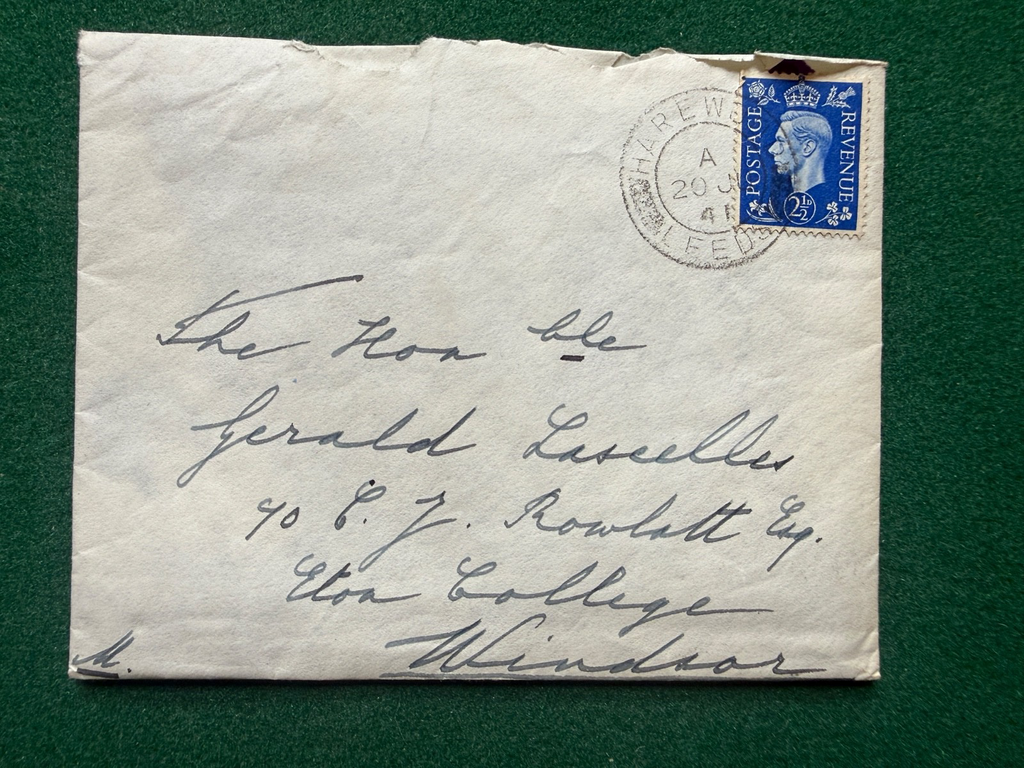 HAREW
A
20 JU
41
LEEDS
POSTAGE
REVENUE
2½D
The Honble
Gerald Lascelles
c/o C. J. Rowlatt Esq.
Eton College
Windsor
M.